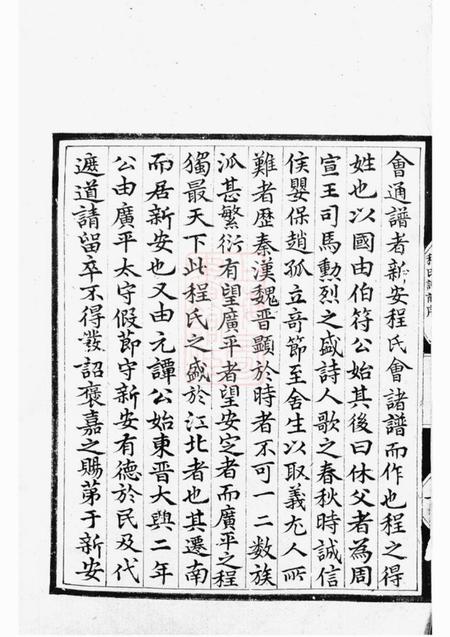 會通譜者新安程氏會諸譜而作也程之得
姓也以國由伯符公始其後曰休父者為周
宣王司馬勲烈之盛詩人歌之春秋時誠信
侯嬰保趙孤立竒節至舍生以取義尤人所
難者歴秦漢魏晉顯於時者不可一二數族
派甚繁衍有望廣平者望安定者而廣平之程
獨最天下此程氏之盛於江北者也其遷南
而居新安也又由元譚公始東晉大興二年
公由廣平太守假節守新安有德於民及代
遮道請留卒不得發詔襃嘉之賜苐于新安